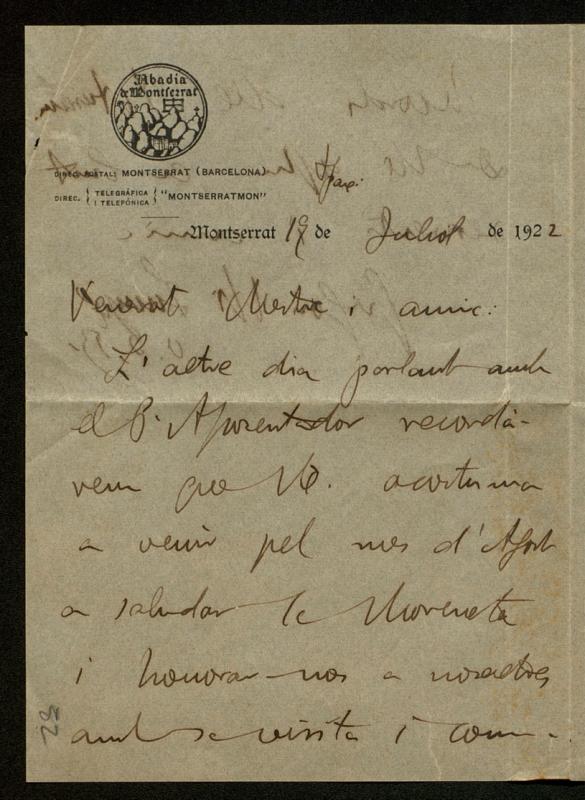 Abadia
de Montserrat
DIREC. POSTAL: MONTSERRAT (BARCELONA)
DIREC. { TELEGRÁFICA I TELEFÓNICA } "MONTSERRATMON"
Montserrat 19 de Juliol de 1922
Venerat Mestre i amic:
L'altre dia parlant amb
el P. Aposentador recordà-
vem que Vè. acostuma
a venir pel mes d'Agost
a saludar la Moreneta
i honorar-nos a nosaltres
amb sa visita i com-
28